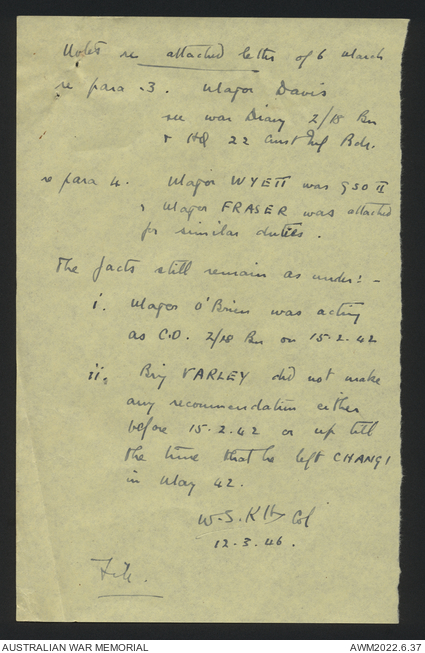 Notes re attached letter of 6 March
re para .3. Major Davis
see war Diary 2/18 Bn
& HQ 22 Aust Inf Bde.
re para 4. Major WYETT was GSO II
& Major FRASER was attached
for similar duties.
The facts still remain as under:-
i. Major O'Brien was acting
as C.O. 2/18 Bn on 15-2-42
ii. Brig VARLEY did not make
any recommendation either
before 15-2-42 or up till
the time that he left CHANGI
in May 42.
W.S. Col
12-3-46.
File.
AUSTRALIAN WAR MEMORIAL
AWM2022.6.37